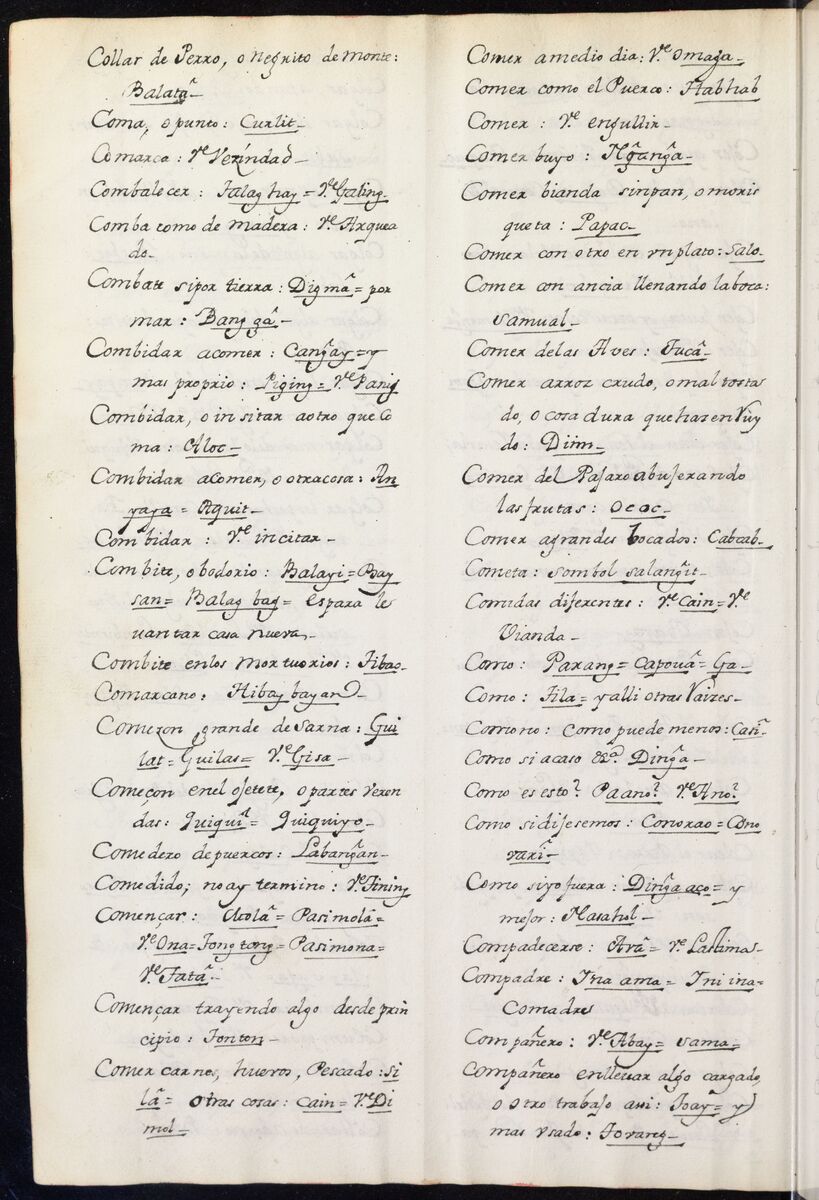 Collar de Perro, o negrito de monte:
Balatâ_
Coma, o punto: Curlit_
Comarca: Vᵉ Verindad_
Combalecer: Talag hay = Vᵉ Gating_
Comba como de madera: Vᵉ Arquea
do_
Combate si por tierra: Digmâ = por
mar: Bang gâ_
Combidar acomer: Cang̃ay = y
mas proprio: Piging = Vᵉ Panig
Combidar, o insitar aotro que Co
ma: Aloc_
Combidar acomer, o otracosa: An
yaya = Aquit_
Combidar: Vᵉ incitar_
Combite, o bodorio: Balayi = Bay
san = Balag bag = es para le
vantar casa nueva_
Combite enlos mortuorios: Tibao_
Comarcano: Hibay bayan_
Comezon grande de Sarna: Gui
lat = Guilas = Vᵉ Gisa_
Começon enel ojetete, o partes veren
das: Quiquî = Quiquiyo_
Comedero de puercos: Labang̃an_
Comedido; no ay termino: Vᵉ Tining
Començar: Acolâ = Pasimolâ =
Vᵉ Ona = Tong tong = Pasimona =
Vᵉ Tatâ_
Començar trayendo algo desde prin
cipio: Tonton_
Comer carnes, huevos, Pescado: Si
lâ = otras cosas: Cain = Vᵉ Di
mol_
Comer amedio dia: Vᵉ Omaga_
Comer como el Puerco: Habhab
Comer: Vᵉ engullir_
Comer buyo: Ng̃ang̃a_
Comer bianda sinpan, o moris
queta: Papac_
Comer con otro en vn plato: Salo_
Comer con ancia llenando laboca:
Samual_
Comer delas Aves: Tucâ_
Comer arroz crudo, o mal tosta
do, o cosa dura que hazen Ruy
do: Diim_
Comer del Pajaro abujerando
las frutas: Ococ_
Comer agrandes bocados: Cabcab_
Cometa: Sombol salang̃it_
Comidas diferentes: Vᵉ Cain = Vᵉ
Vianda_
Como: Parang = Capouâ = Ga_
Como: Tila = y alli otras Raizes_
Como no: Como puede menos: Casî_
Como si acaso &ᵃ Ding̃a_
Como es esto? Paano? Vᵉ Ano?
Como si dijesemos: Conorao = Cono
varî_
Como si yo fuera: Ding̃a aco = y
mejor: Masahol_
Compadecerse: Avâ = Vᵉ Lastima_
Compadre: Ina ama = Ini ina =
Comadre
Compañero: Vᵉ Abay = Sama =
Compañero enllevar algo cargado,
o otro trabajo assi: Toayâ = y
mas vsado: Tovareg_